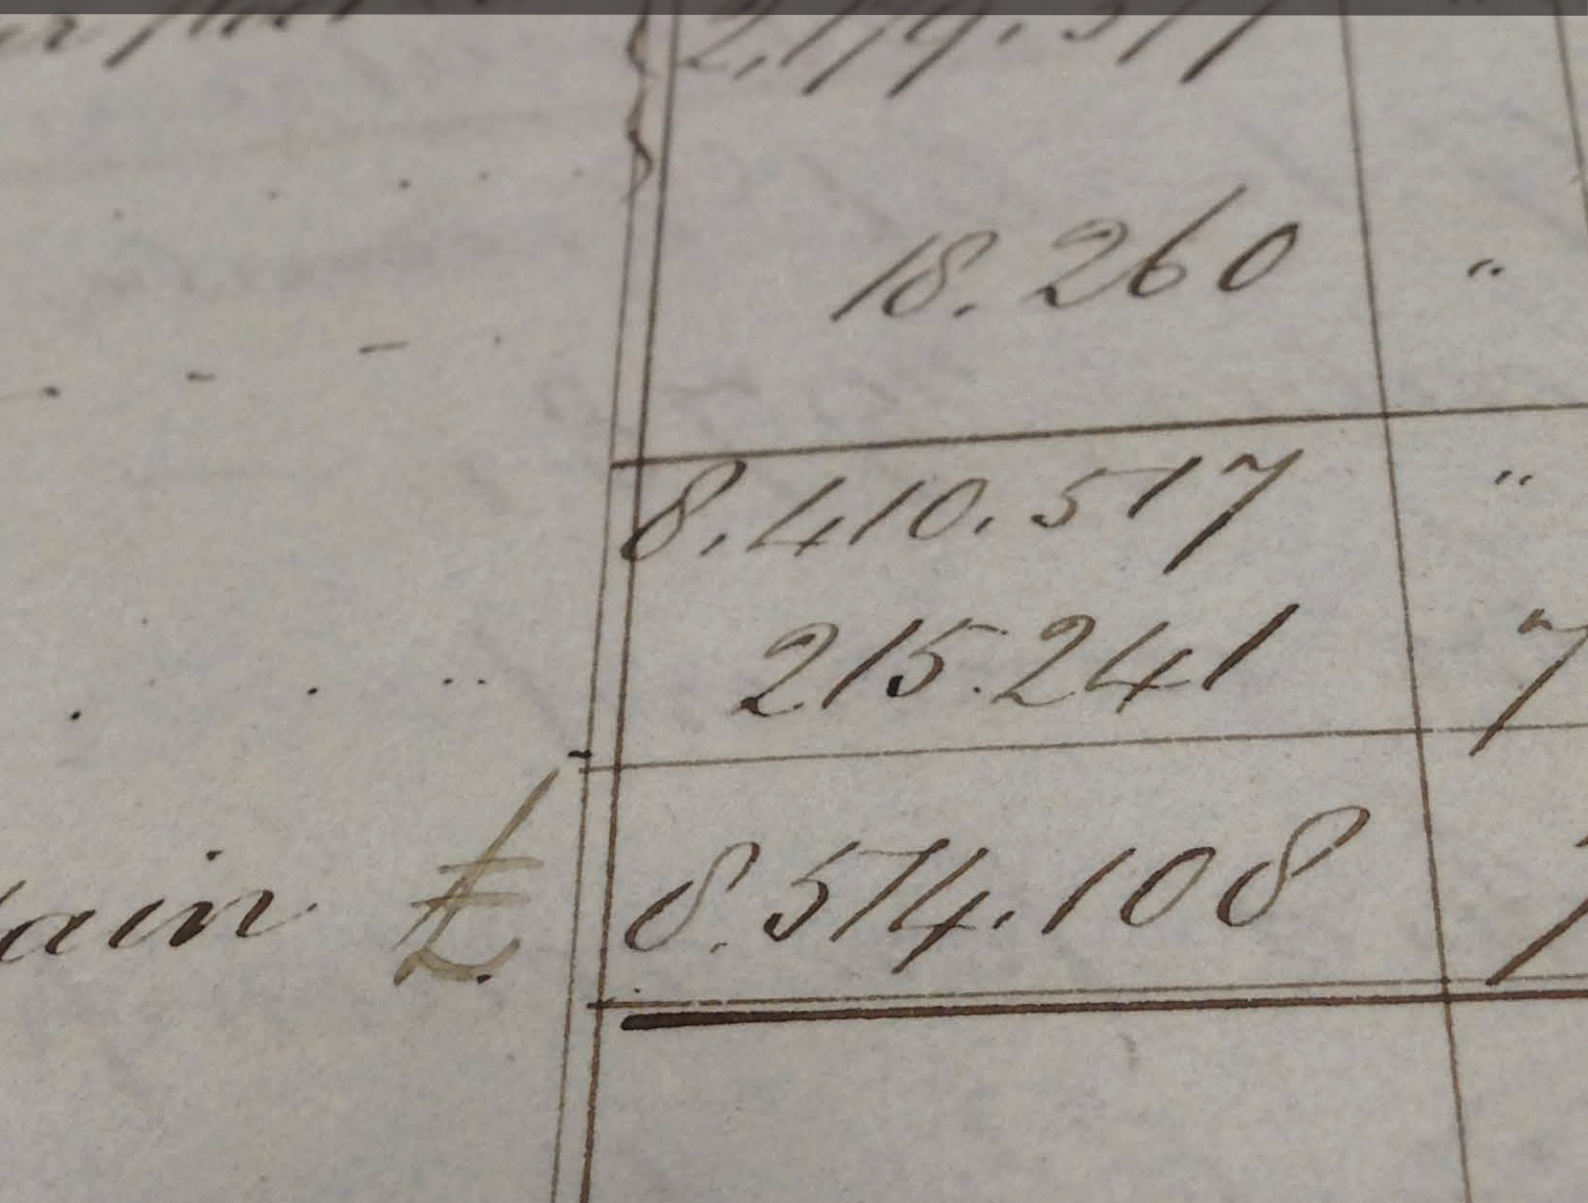 18.260 "
8,410.517 "
215.241 7
tain £ 8.574.108 7